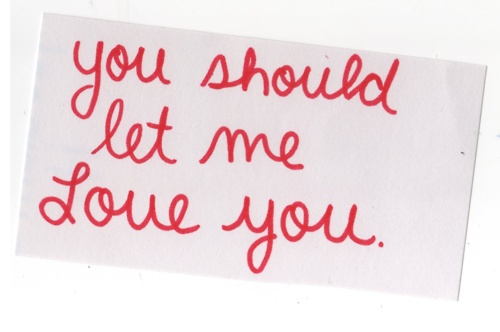 you should
let me
Love you.